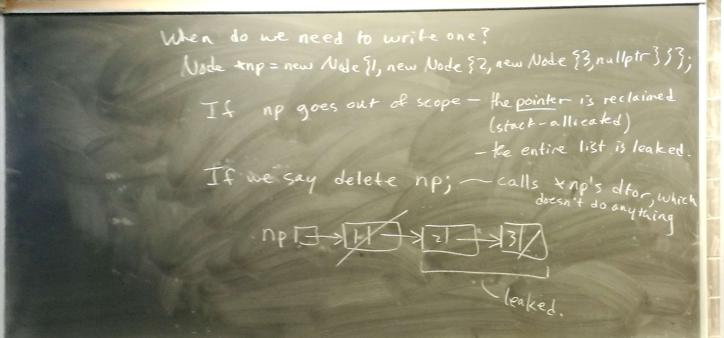 When do we need to write one?
Node *np = new Node {1, new Node {2, new Node {3, nullptr}}};
If np goes out of scope – the pointer is reclaimed
(stack-allocated)
– the entire list is leaked.
If we say delete np; – calls *np's dtor, which
doesn't do anything
np 1 2 3
leaked.